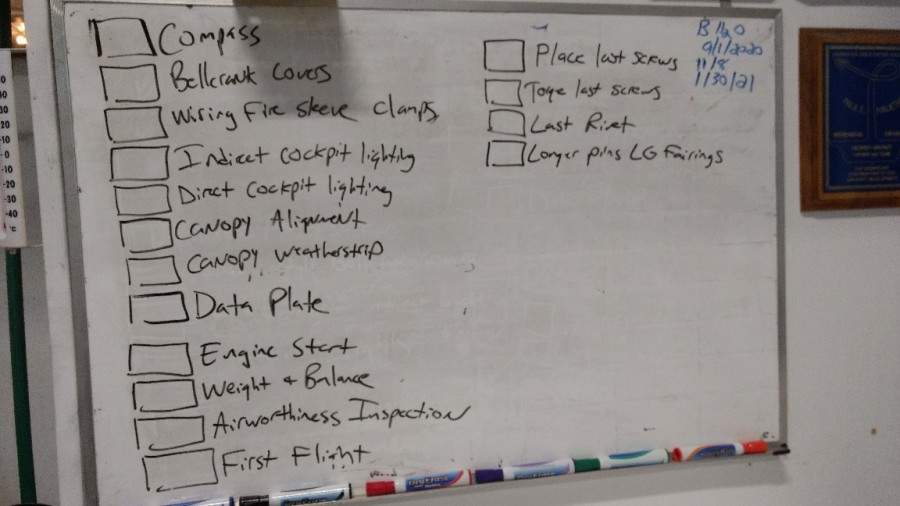 Compass
Bellcrank Covers
Wiring Fire sleeve clamps
Indirect cockpit lighting
Direct cockpit lighting
Canopy Alignment
Canopy weatherstrip
Data Plate
Engine Start
Weight & Balance
Airworthiness Inspection
First Flight
Place last screws
Torqe last screws
Last Rivet
Longer pins LG Fairings
9/1/2020
11/8
1/30/21